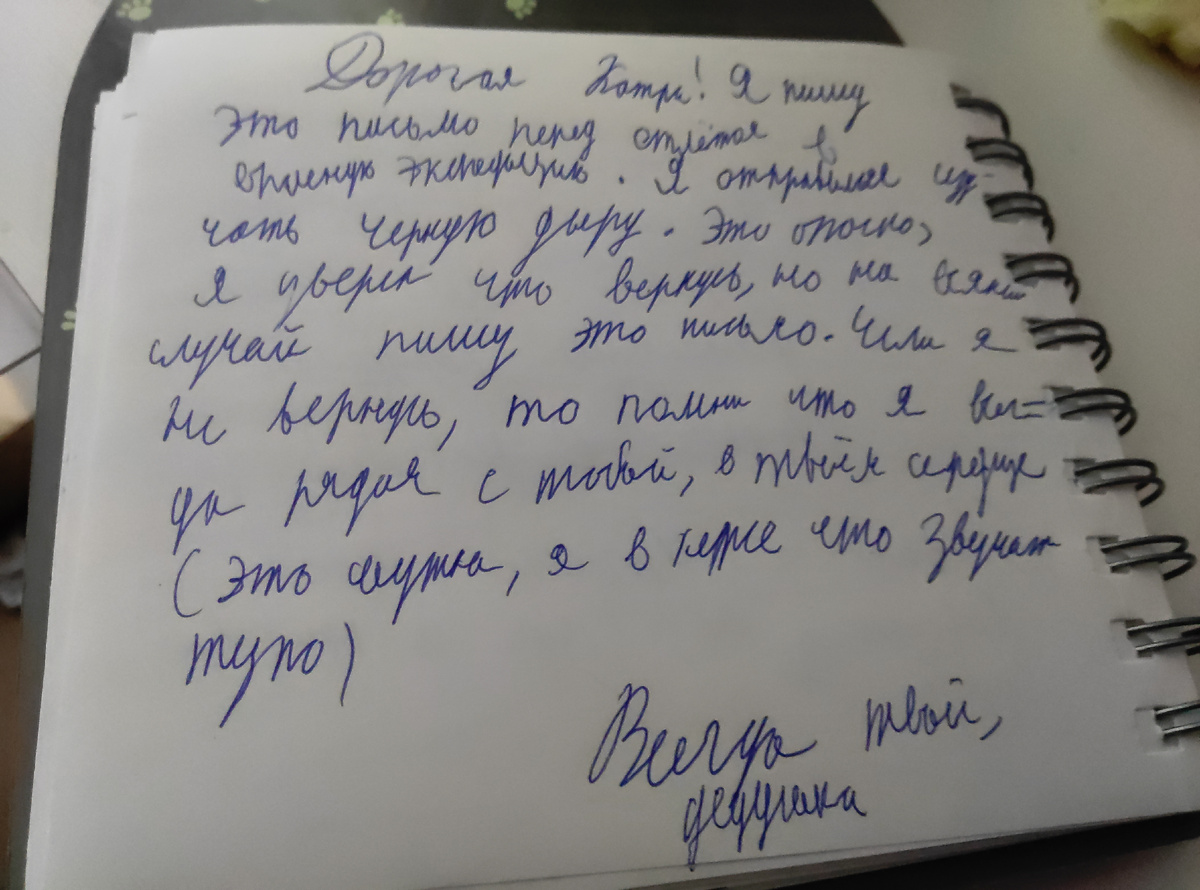 Дорогая Кэтри! Я пишу
это письмо перед отлётом в
опасную экспедицию. Я отправляюсь изу-
чать черную дыру. Это опасно,
я уверен что вернусь, но на всякий
случай пишу это письмо. Если я
не вернусь, то помни что я всег-
да рядом с тобой, в твоём сердце
(это шутка, я в курсе что звучит
тупо)
Всегда твой,
дедушка